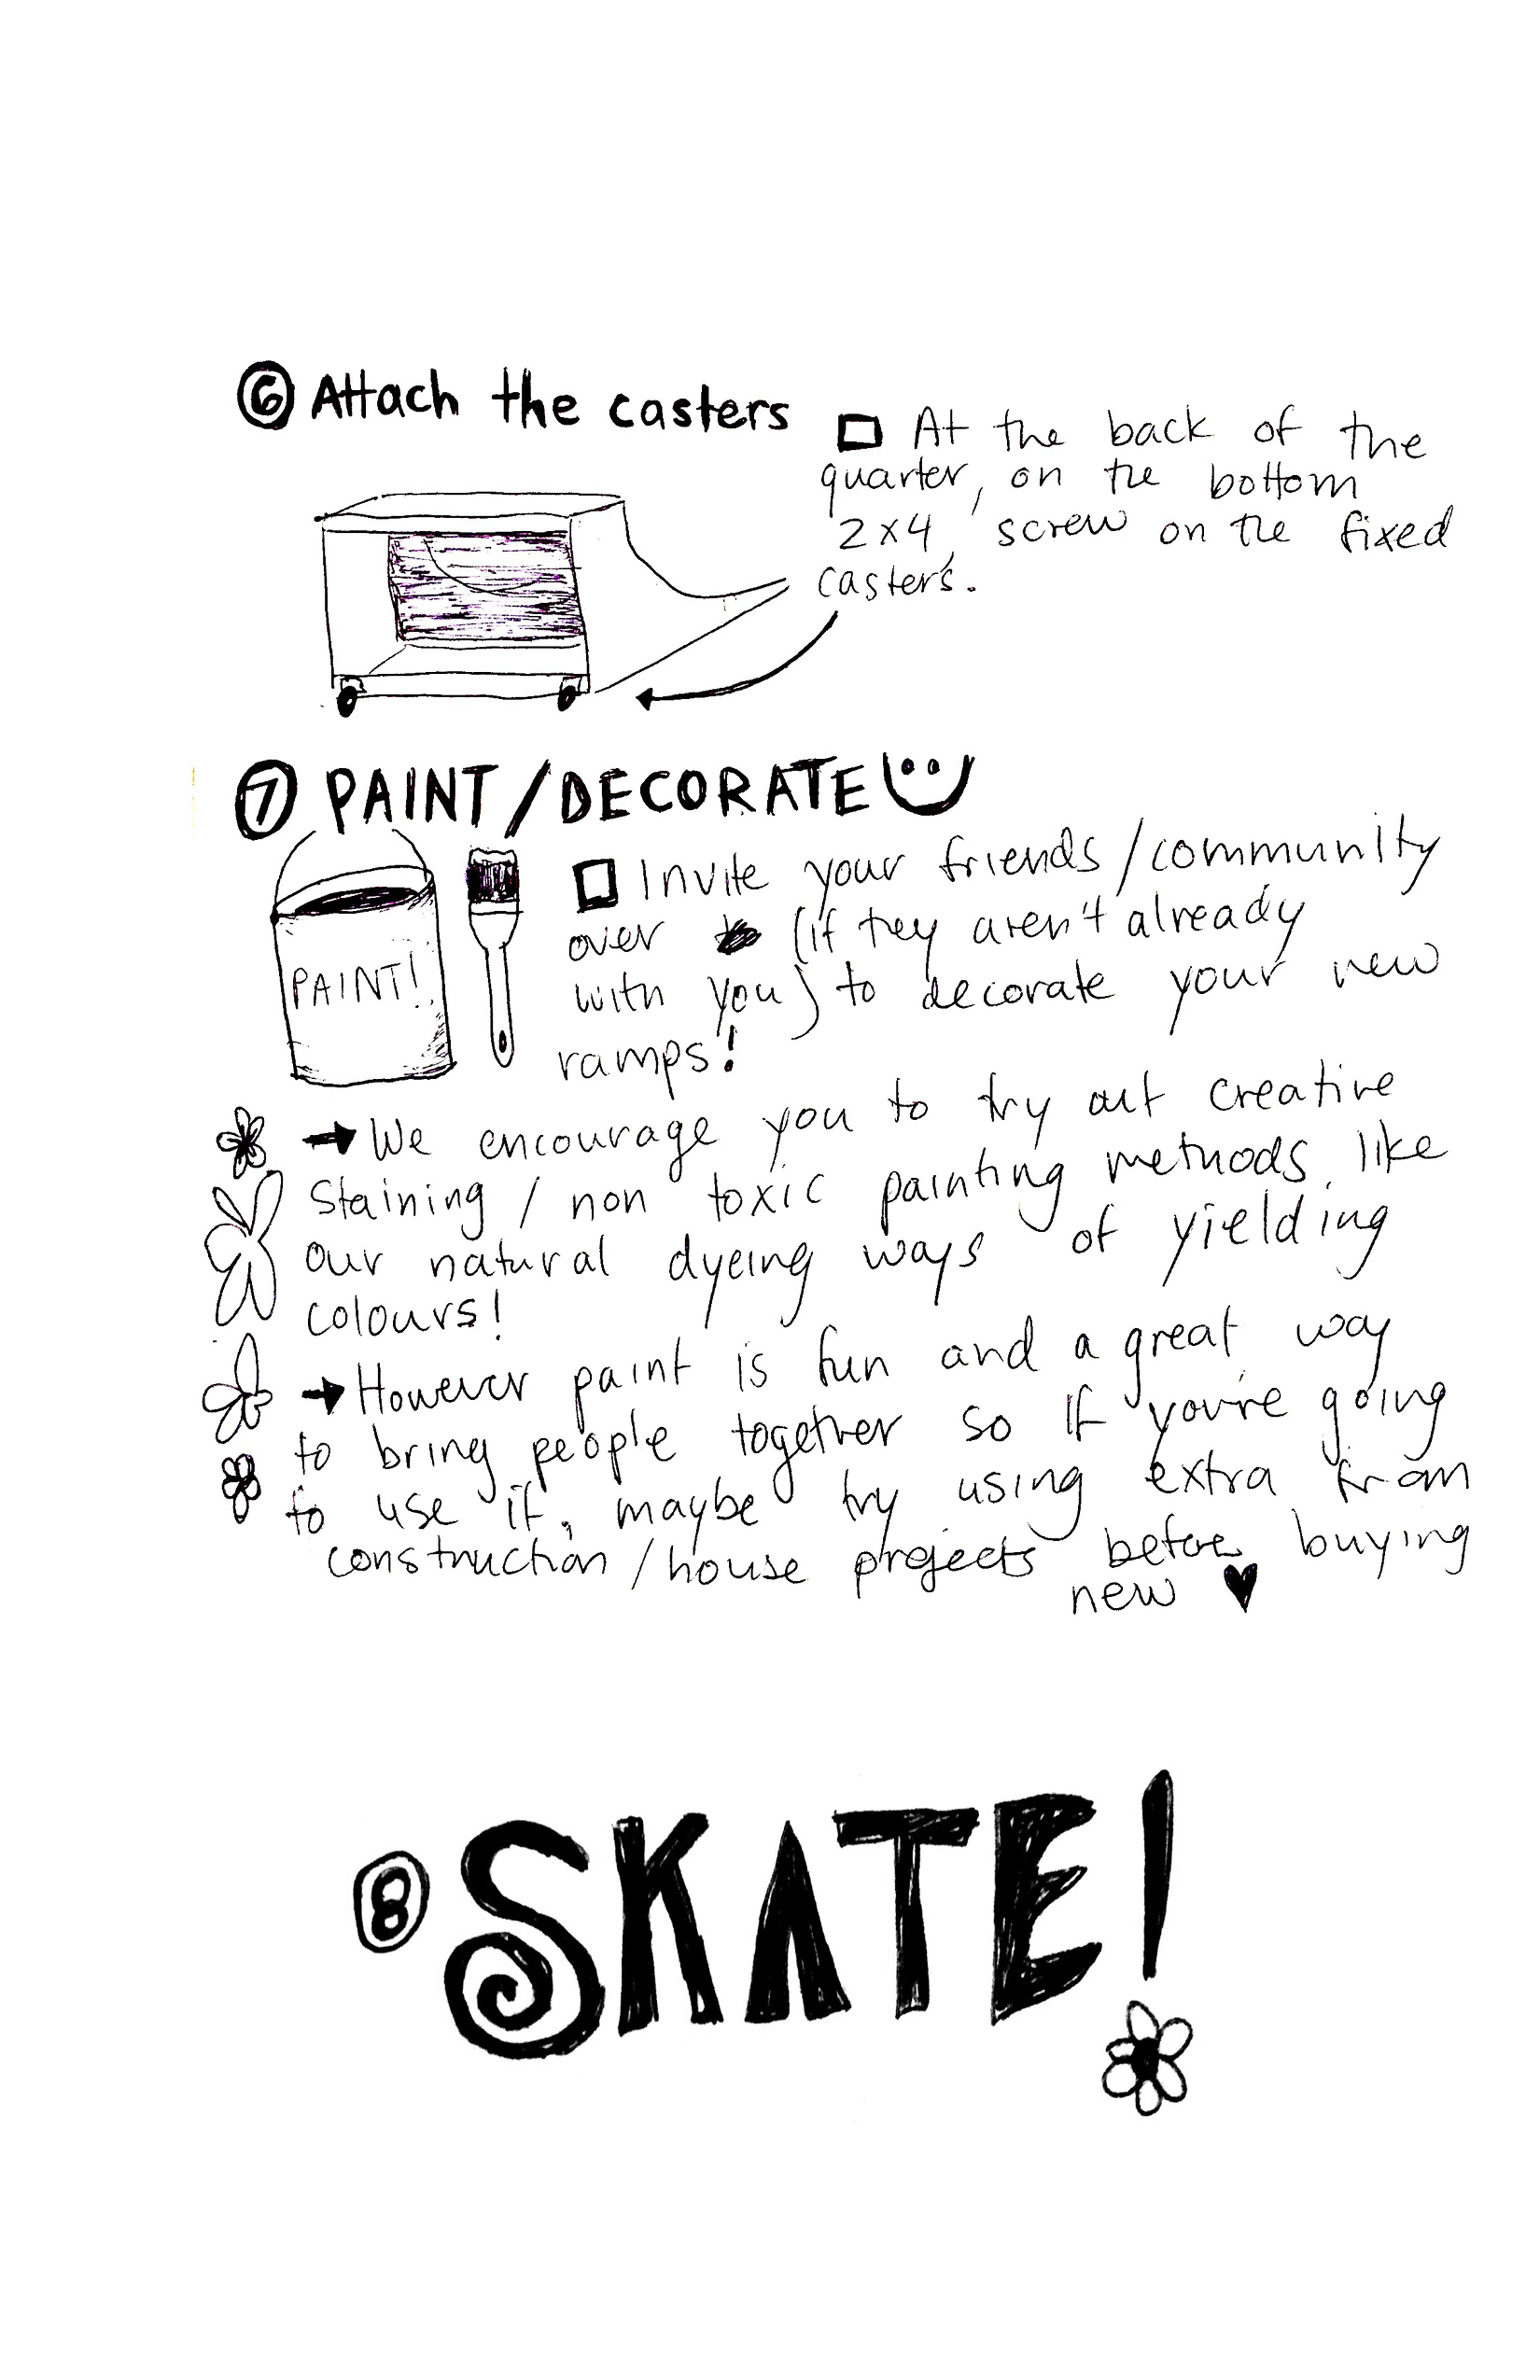 ⑥ Attach the casters
☐ At the back of the
quarter, on the bottom
2x4, screw on the fixed
casters.
⑦ PAINT/DECORATE
PAINT!
☐ Invite your friends/community
over (if they aren't already
with you) to decorate your new
ramps!
→ We encourage you to try out creative
staining / non toxic painting methods like
our natural dyeing ways of yielding
colours!
→ However paint is fun and a great way
to bring people together so if you're going
to use it, maybe try using extra from
construction/house projects before buying
new ♥
⑧ SKATE!